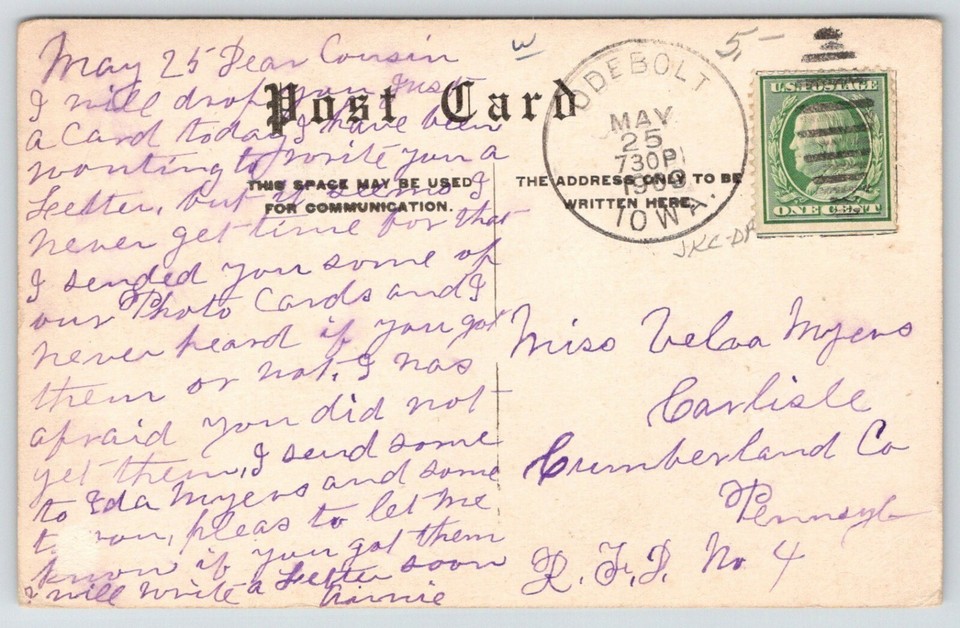 May 25 Dear Cousin
I will drop you Just
a Card today I have been
wanting to write you a
Letter, but it seems I
never get time for that
I sended you some of
our Photo Cards and I
never heard if you got
them or not, I was
afraid you did not
get them, I send some
to Ida Myers and some
to you, pleas to let me
know if you got them
I will write a Letter soon
Post Card
THIS SPACE MAY BE USED
FOR COMMUNICATION.
THE ADDRESS ONLY TO BE
WRITTEN HERE.
w
5-
ODEBOLT
MAY
25
730P
1909
IOWA.
U.S. POSTAGE
ONE CENT
Miss Velva Myers
Carlisle
Cumberland Co
R. F. D. No 4